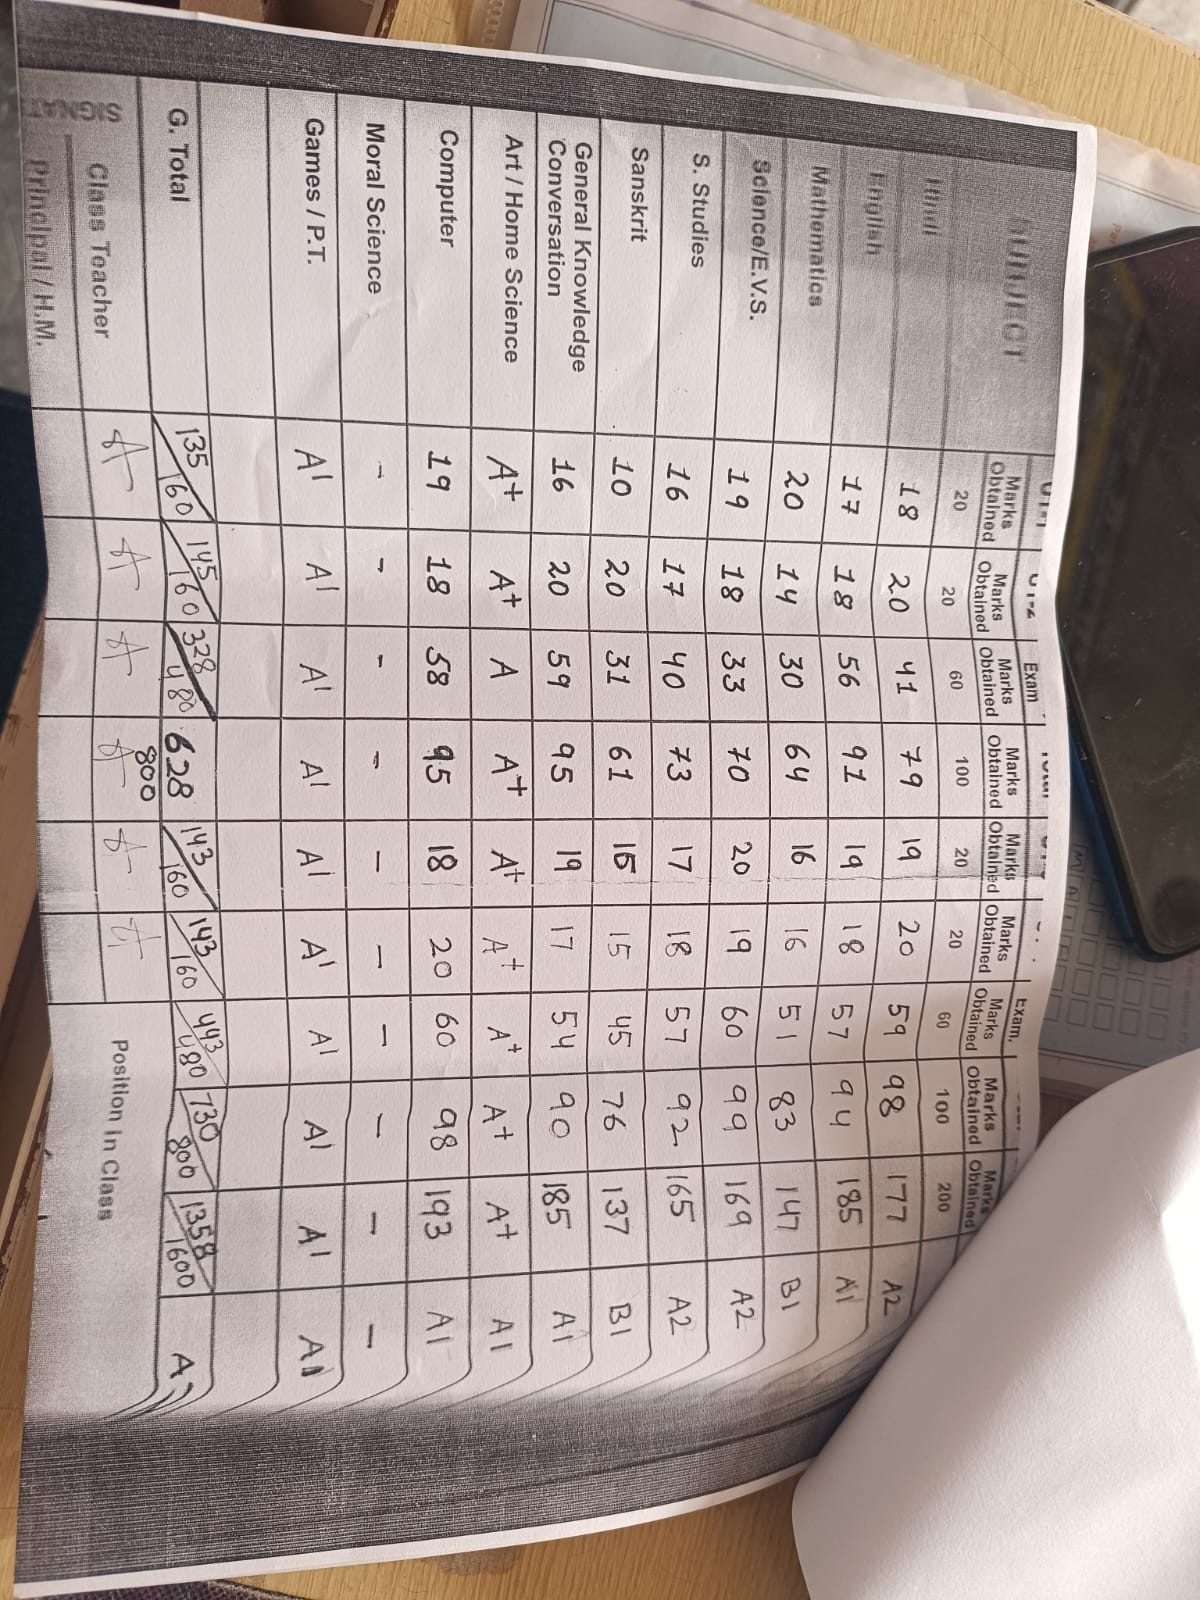 SUBJECT
Marks Obtained Marks Obtained Marks Obtained Marks Obtained Marks Obtained Marks Obtained Marks Obtained Marks Obtained Marks Obtained
Exam Exam.
20 20 60 100 20 20 60 100 200
Hindi 18 20 41 79 19 20 59 98 177 A2
English 17 18 56 91 19 18 57 94 185 A1
Mathematics 20 14 30 64 16 16 51 83 147 B1
Science/E.V.S. 19 18 33 70 20 19 60 99 169 A2
S. Studies 16 17 40 73 17 18 57 92 165 A2
Sanskrit 10 20 31 61 15 15 45 76 137 B1
General Knowledge
Conversation 16 20 59 95 19 17 54 90 185 A1
Art / Home Science A+ A+ A A+ A+ A+ A+ A+ A+ A1
Computer 19 18 58 95 18 20 60 98 193 A1
Moral Science - - - - - - - - - -
Games / P.T. A1 A1 A1 A1 A1 A1 A1 A1 A1 A1
G. Total 135/160 145/160 328/480 628/800 143/160 143/160 443/480 730/800 1358/1600
Class Teacher
Position in Class
Principal / H.M.